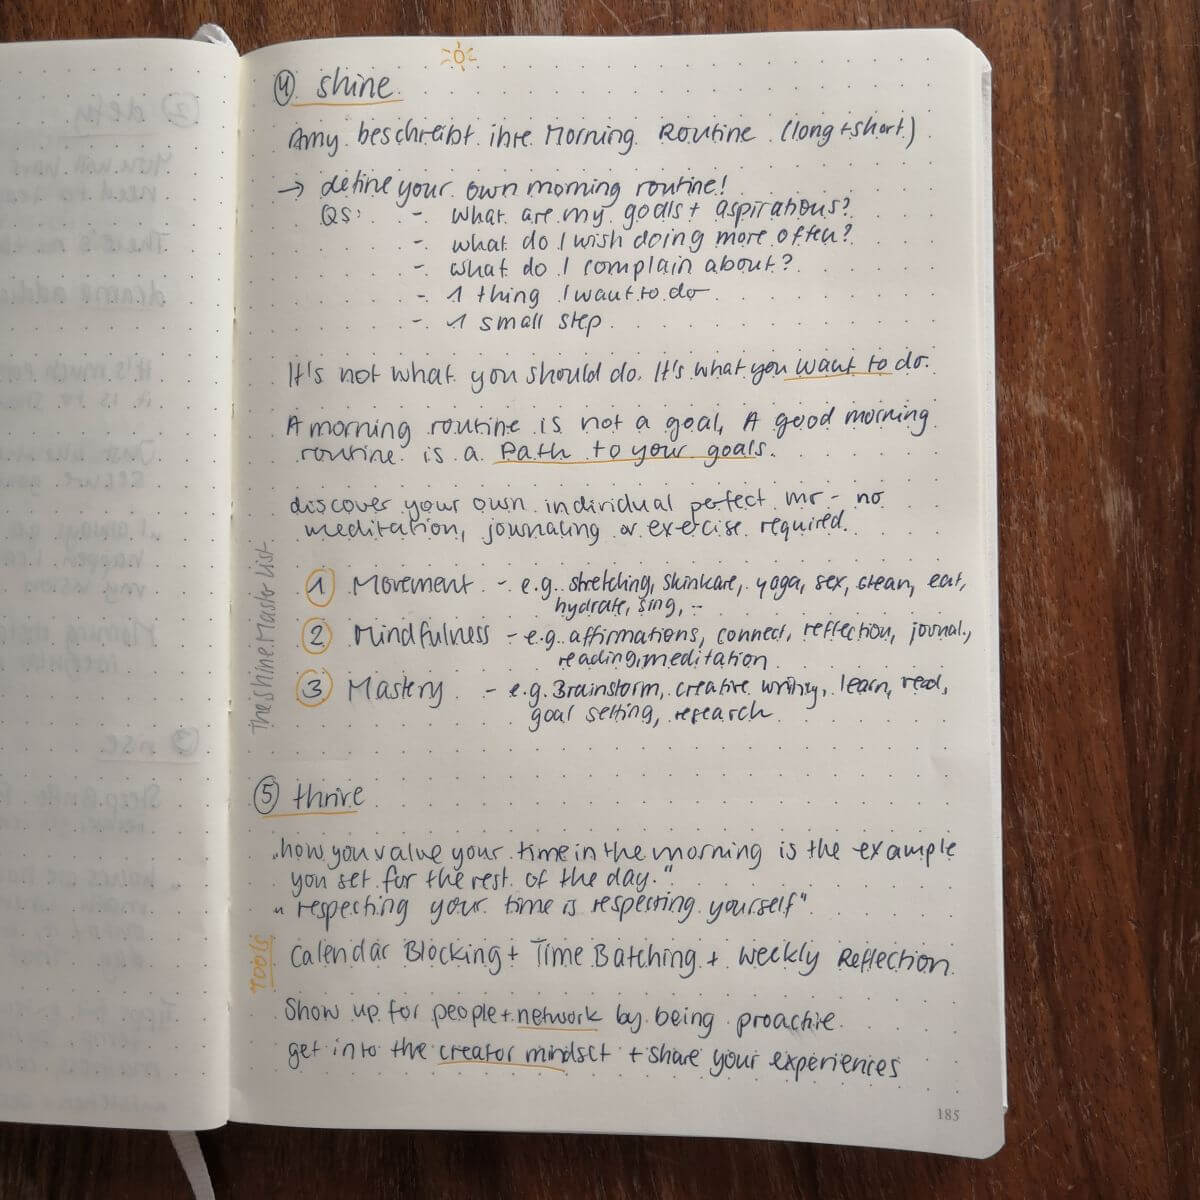 ④ shine
Amy beschreibt ihre Morning Routine (long + short)
→ define your own morning routine!
QS: - what are my goals + aspirations?
- what do I wish doing more often?
- what do I complain about?
- 1 thing I want to do
- 1 small step
It's not what you should do. It's what you want to do.
A morning routine is not a goal, A good morning
routine is a Path to your goals.
discover your own individual perfect mr - no
meditation, journaling or exercise required.
the shine Master List
① Movement - e.g. stretching, skinkare, yoga, sex, clean, eat,
hydrate, sing, ...
② Mindfulness - e.g. affirmations, connect, reflection, journal,
reading, meditation
③ Mastery - e.g. Brainstorm, creative writing, learn, read,
goal setting, research
⑤ thrive
„how you value your time in the morning is the example
you set for the rest of the day."
„respecting your time is respecting yourself"
Tools
Calendar Blocking + Time Batching + Weekly Reflection
Show up for people + network by being proactive
get into the creator mindset + share your experiences
185